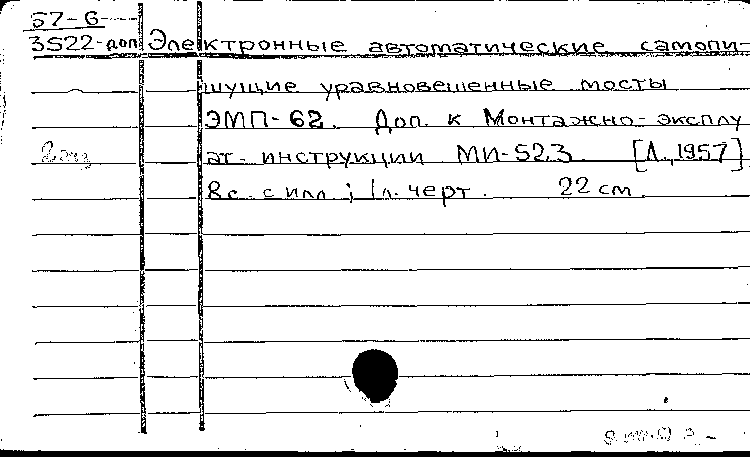 57-6
3522-доп Электронные автоматические самопи-
шущие уравновешенные мосты
ЭМП-62. Доп. к Монтажно-эксплу
ат-инструкции МИ-523. [Л., 1957]
8 с. с илл.; 1 л. черт. 22 см.
2 экз